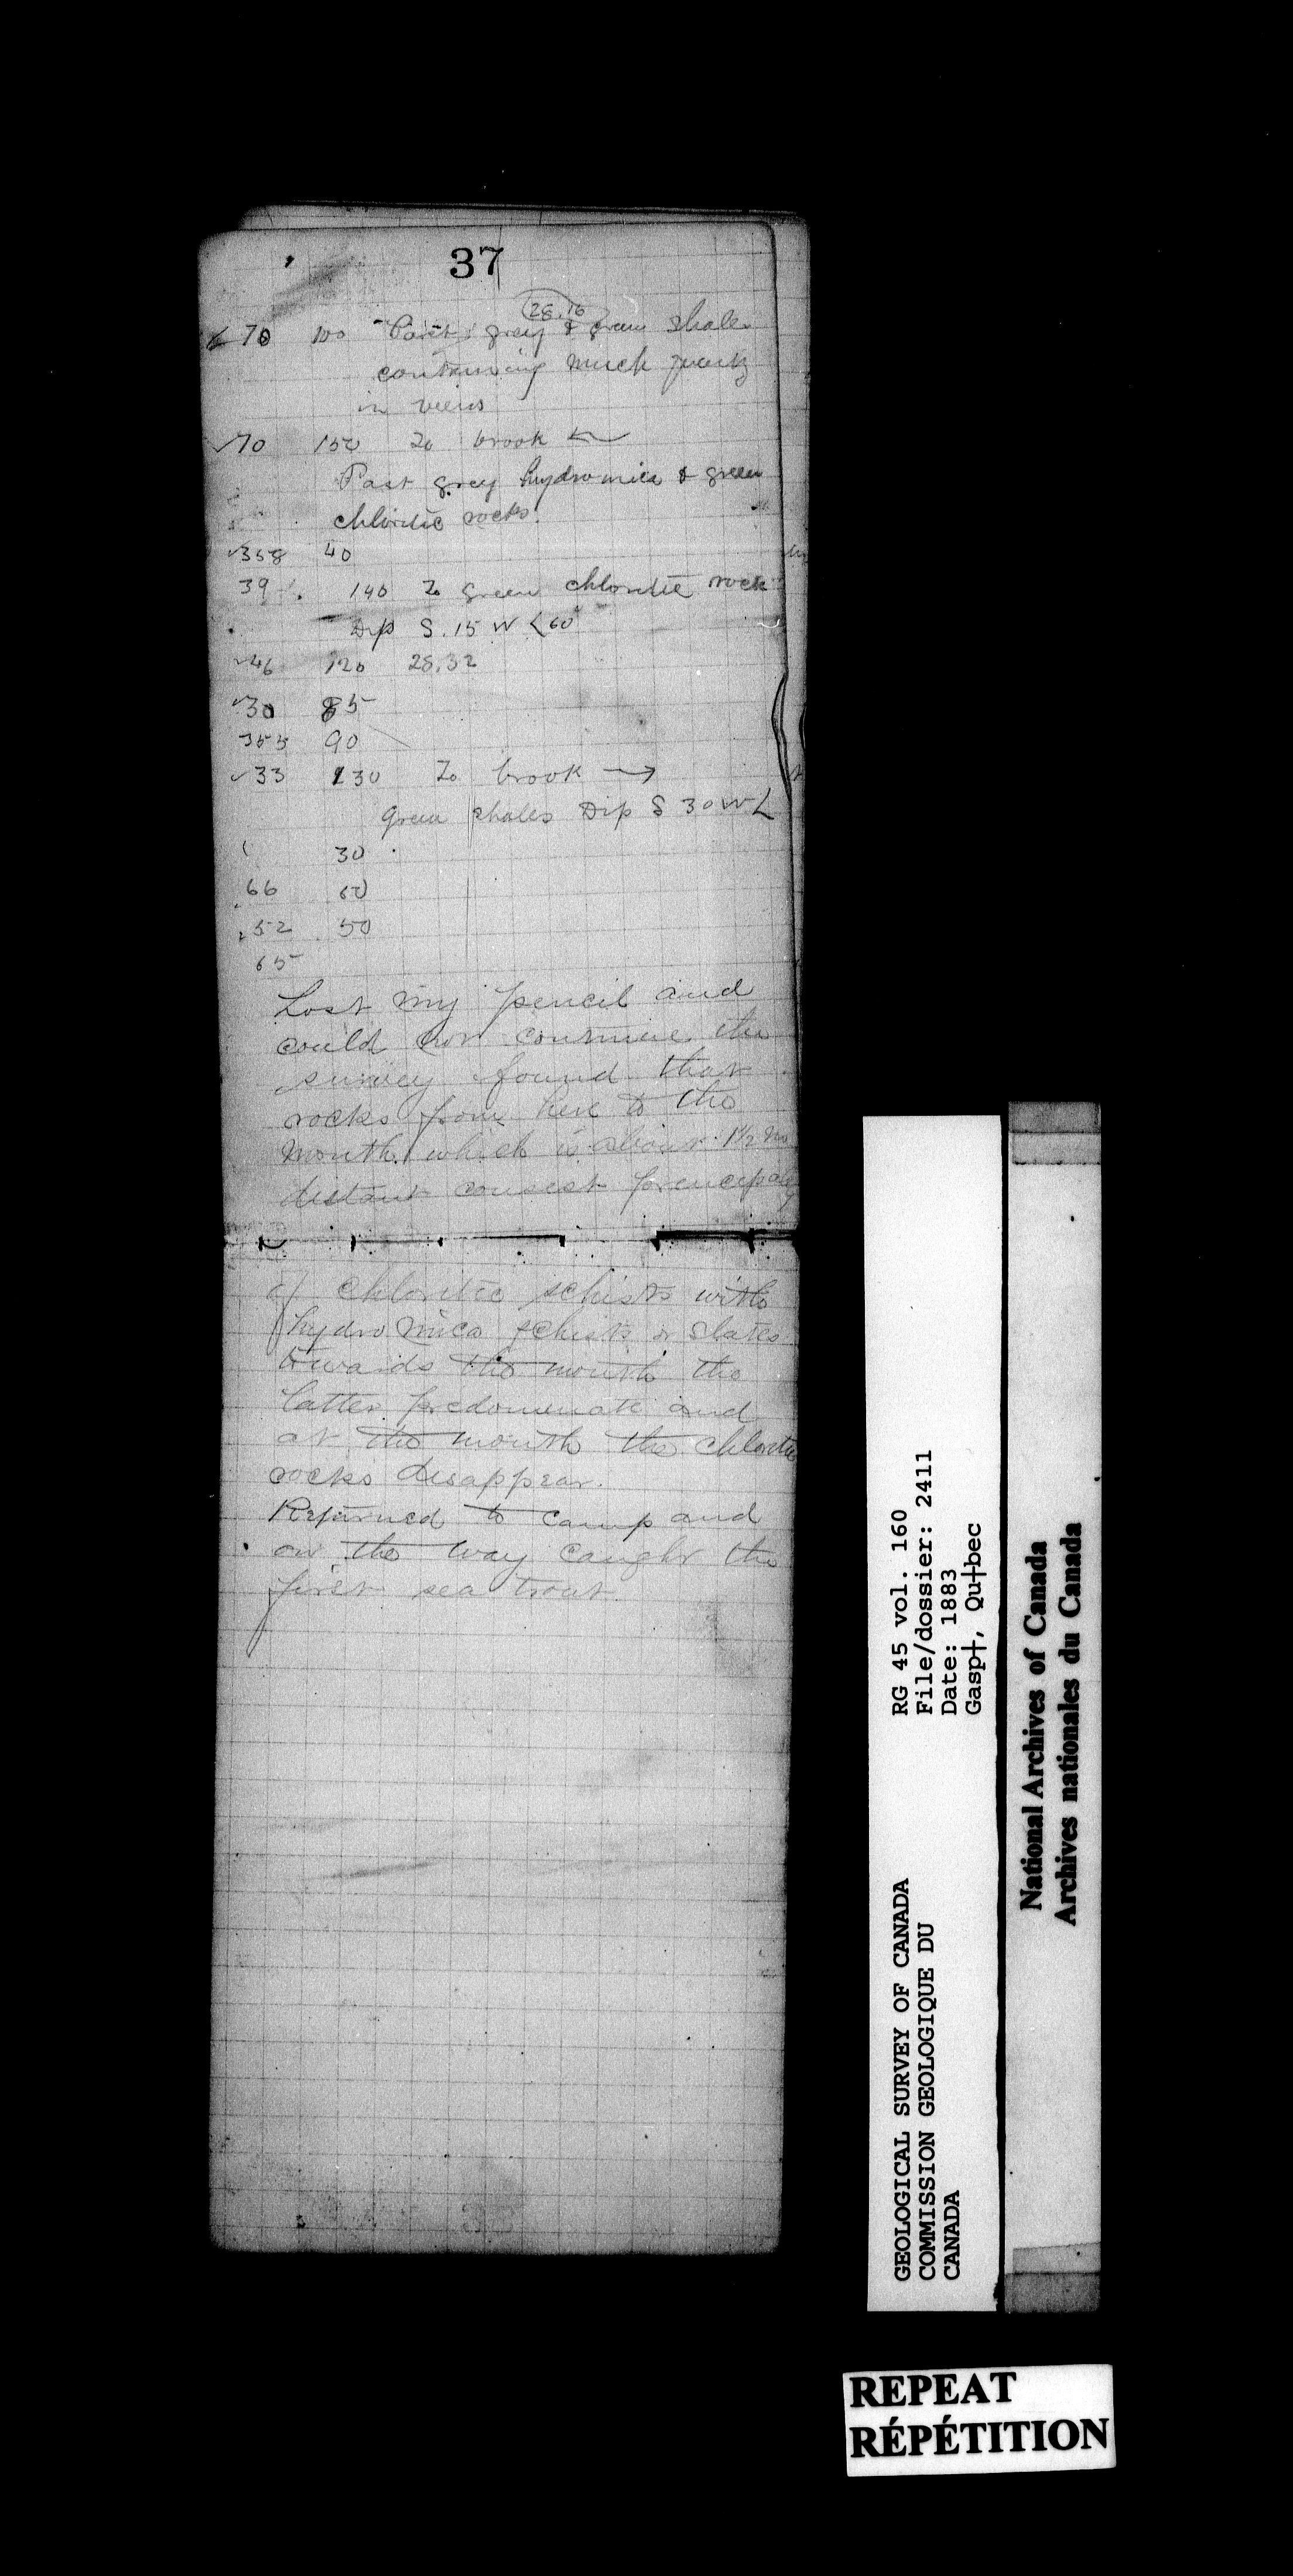 37
28.16
70 100 Past grey & green shales
containing much quartz
in veins
70 150 To brook ←
Past grey hydromica & green
chloritic rocks.
358 40
39 140 To green chloritic rock
Dip S. 15 W <60°
46 120 28.32
30 85
355 90
33 130 To brook →
Green shales Dip S 30 W <
30
66 60
52 50
65
Lost my pencil and
could not continue the
survey found that
rocks from here to the
mouth which is about 1½ m
distant consist principaly
of chloritic schists with
hydro mica schists or slates
towards the mouth the
latter predomenate and
at the mouth the chloritic
rocks disappear.
Returned to camp and
on the way caught the
first sea trout.
RG 45 vol. 160
File/dossier: 2411
Date: 1883
Gasp†, Qu†bec
GEOLOGICAL SURVEY OF CANADA
COMMISSION GEOLOGIQUE DU
CANADA
National Archives of Canada
Archives nationales du Canada
REPEAT
RÉPÉTITION